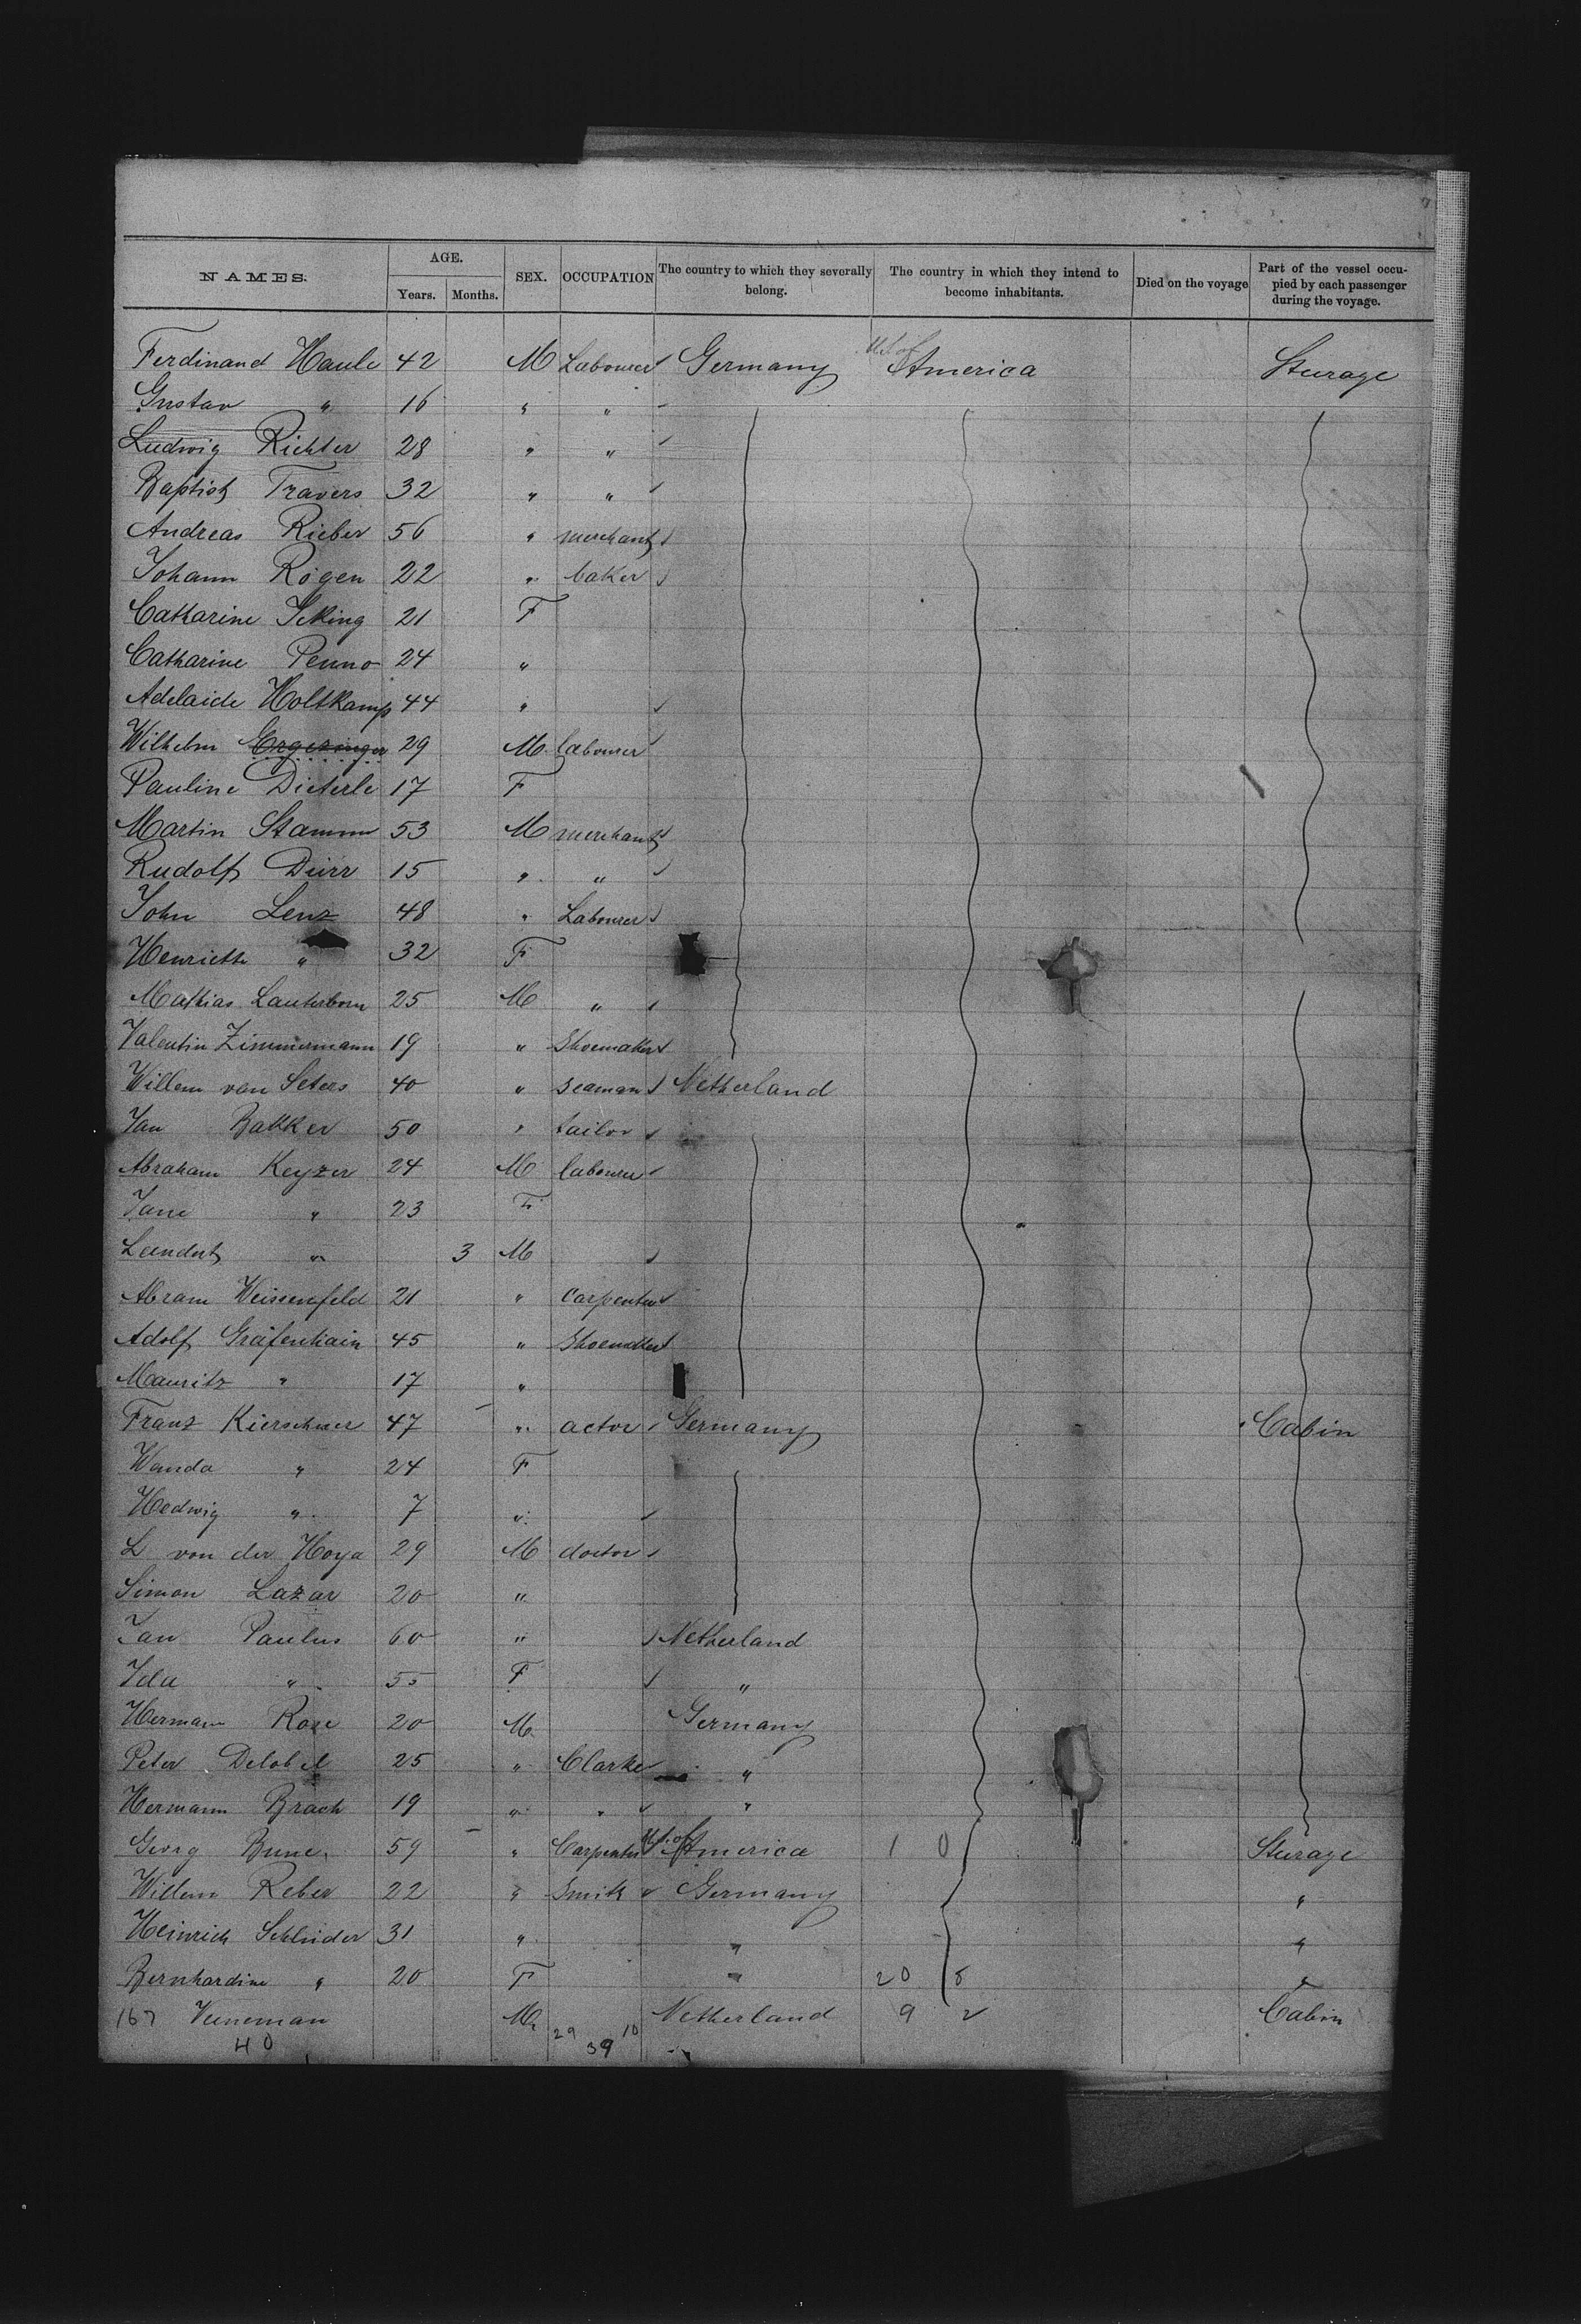 NAMES. AGE. Years. Months. SEX. OCCUPATION The country to which they severally belong. The country in which they intend to become inhabitants. Died on the voyage Part of the vessel occupied by each passenger during the voyage.
Ferdinand Haule 42 M Labourer Germany U.S. of America Sturage
Gustav " 16 " "
Ludwig Richter 28 " "
Baptist Travers 32 " "
Andreas Rieber 56 " merchant
Johann Rögen 22 " baker
Catharine Icking 21 F
Catharine Penno 24 "
Adelaide Holtkamp 44 "
Wilhelm Ergezinger 29 M labourer
Pauline Dieterle 17 F
Martin Stamm 53 M merchant
Rudolf Dürr 15 " "
John Lenz 48 " Labourer
Henriette " 32 F
Mathias Lauterborn 25 M "
Valentin Zimmermann 19 " Shoemaker
Willem van Seters 40 " seaman Netherland
Jan Bakker 50 " tailor
Abraham Keyzer 24 M labourer
Jane " 23 F
Leendert " 3 M
Abram Weissenfeld 21 " carpenter
Adolf Gräfenhain 45 " Shoemaker
Mauritz " 17 "
Franz Kierschner 47 " actor Germany Cabin
Wanda " 24 F
Hedwig " 7 "
L von der Hoya 29 M doctor
Simon Lazar 20 "
Jan Paulus 60 " Netherland
Ida " 55 F "
Hermann Rose 20 M Germany
Peter Delobel 25 " Clarke "
Hermann Brach 19 " " "
Georg 59 " Carpenter U.S. of America 1 0 Sturage
Willem Reber 22 " Smith Germany "
Heinrich Schlüder 31 " " "
Bernhardine " 20 F " 20 8 "
167 Veeneman M Netherland 9 2 Cabin
40 29 10 39